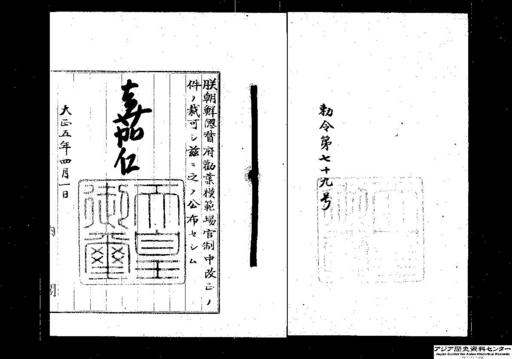 勅令第七十九号
朕朝鮮総督府勧業模範場官制中改正ノ
件ヲ裁可シ茲ニ之ヲ公布セシム
嘉仁
天皇御璽
大正五年四月一日
内閣
アジア歴史資料センター
Japan Center for Asian Historical Records